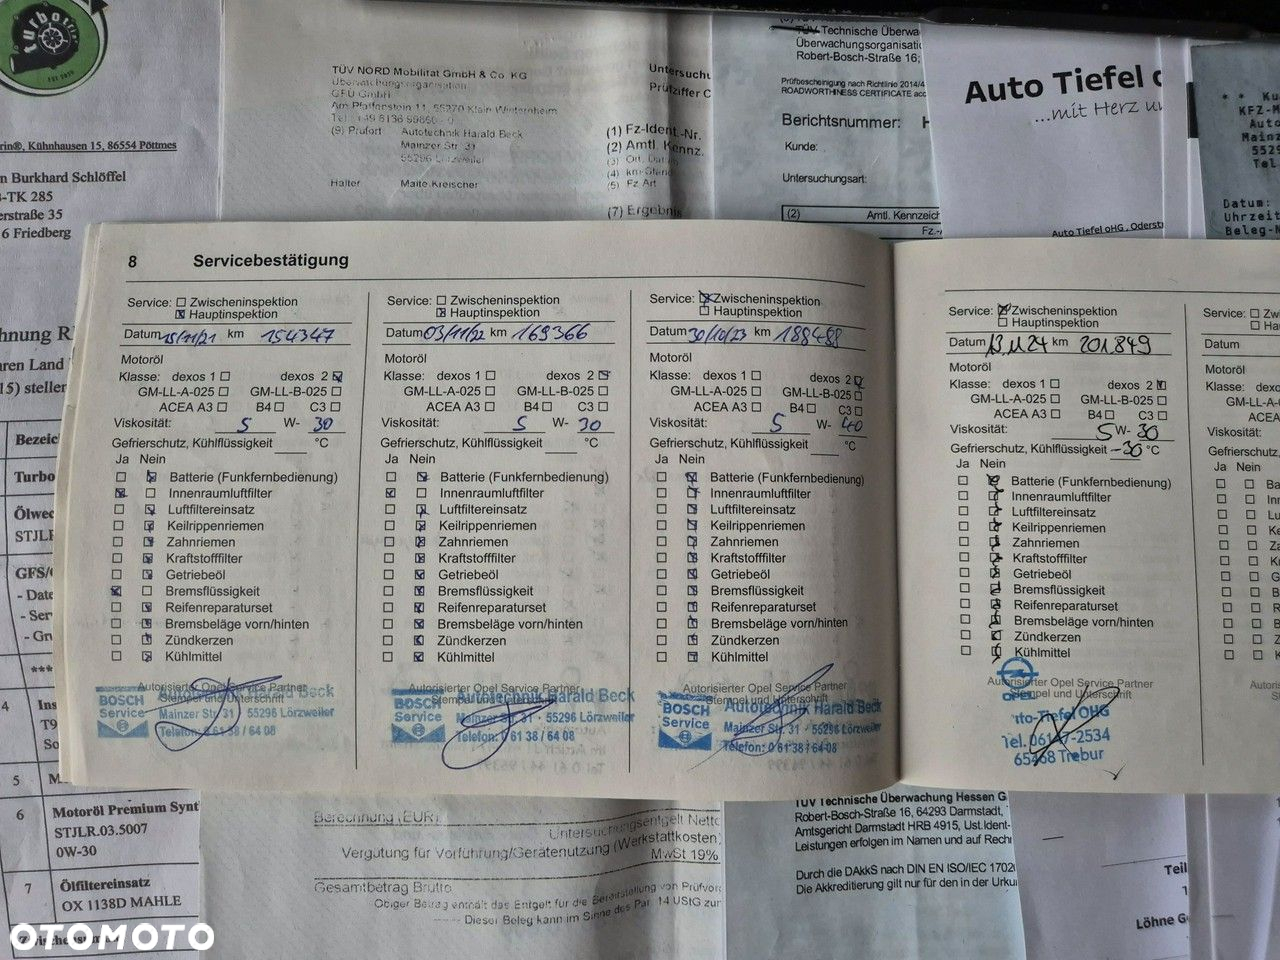 turbo
EST 2010
Kühnhausen 15, 86554 Pöttmes
n Burkhard Schlöffel
-TK 285
erstraße 35
6 Friedberg
TÜV NORD Mobilität GmbH & Co. KG
Überwachungsorganisation
GFU GmbH
Am Pfaffenstein 11, 55270 Klein Winternheim
(9) Prüfort Autotechnik Harald Beck
Mainzer Str. 31
55296 Lörzweiler
Halter
Untersuch
Prüfziffer C
(1) Fz-Ident.-Nr.
(2) Amtl. Kennz.
(4) km-Stand
(5) Fz.Art
(7) Ergebnis
TÜV Technische Überwa
Überwachungsorganisati
Robert-Bosch-Straße 16;
Prüfbescheinigung nach Richtlinie 2014/4
ROADWORTHINESS CERTIFICATE acc
Berichtsnummer:
Kunde:
Untersuchungsart:
(2) Amtl. Kennzeich
Fz.-
Auto Tiefel o
...mit Herz u
Auto Tiefel oHG , Oderst
* * Ku
KFZ-M
Auto
Mainz
5529
Tel.
Datum:
Uhrzeit
Beleg-N
8 Servicebestätigung
Service: Zwischeninspektion
Hauptinspektion
Datum 15/11/21 km 154347
Motoröl
Klasse: dexos 1 dexos 2
GM-LL-A-025 GM-LL-B-025
ACEA A3 B4 C3
Viskosität: 5 W- 30
Gefrierschutz, Kühlflüssigkeit °C
Ja Nein
Batterie (Funkfernbedienung)
Innenraumluftfilter
Luftfiltereinsatz
Keilrippenriemen
Zahnriemen
Kraftstofffilter
Getriebeöl
Bremsflüssigkeit
Reifenreparaturset
Bremsbeläge vorn/hinten
Zündkerzen
Kühlmittel
Autorisierter Opel Service Partner
Stempel und Unterschrift
BOSCH
Service
Autotechnik Harald Beck
Mainzer Str. 31 55296 Lörzweiler
Telefon: 0 61 38 / 64 08
Service: Zwischeninspektion
Hauptinspektion
Datum 03/11/22 km 169366
Motoröl
Klasse: dexos 1 dexos 2
GM-LL-A-025 GM-LL-B-025
ACEA A3 B4 C3
Viskosität: 5 W- 30
Gefrierschutz, Kühlflüssigkeit °C
Ja Nein
Batterie (Funkfernbedienung)
Innenraumluftfilter
Luftfiltereinsatz
Keilrippenriemen
Zahnriemen
Kraftstofffilter
Getriebeöl
Bremsflüssigkeit
Reifenreparaturset
Bremsbeläge vorn/hinten
Zündkerzen
Kühlmittel
Autorisierter Opel Service Partner
Stempel und Unterschrift
BOSCH
Service
Autotechnik Harald Beck
Mainzer Str. 31 · 55296 Lörzweiler
Telefon: 0 61 38 / 64 08
Service: Zwischeninspektion
Hauptinspektion
Datum 30/10/23 km 188488
Motoröl
Klasse: dexos 1 dexos 2
GM-LL-A-025 GM-LL-B-025
ACEA A3 B4 C3
Viskosität: 5 W- 40
Gefrierschutz, Kühlflüssigkeit °C
Ja Nein
Batterie (Funkfernbedienung)
Innenraumluftfilter
Luftfiltereinsatz
Keilrippenriemen
Zahnriemen
Kraftstofffilter
Getriebeöl
Bremsflüssigkeit
Reifenreparaturset
Bremsbeläge vorn/hinten
Zündkerzen
Kühlmittel
Autorisierter Opel Service Partner
Stempel und Unterschrift
BOSCH
Service
Autotechnik Harald Beck
Mainzer Str. 31 · 55296 Lörzweiler
Telefon: 0 61 38 / 64 08
Service: Zwischeninspektion
Hauptinspektion
Datum 13.11.24 km 201.849
Motoröl
Klasse: dexos 1 dexos 2
GM-LL-A-025 GM-LL-B-025
ACEA A3 B4 C3
Viskosität: 5 W- 30
Gefrierschutz, Kühlflüssigkeit -30 °C
Ja Nein
Batterie (Funkfernbedienung)
Innenraumluftfilter
Luftfiltereinsatz
Keilrippenriemen
Zahnriemen
Kraftstofffilter
Getriebeöl
Bremsflüssigkeit
Reifenreparaturset
Bremsbeläge vorn/hinten
Zündkerzen
Kühlmittel
Autorisierter Opel Service Partner
Stempel und Unterschrift
OPEL
to-Tiefel OHG
Tel. 06147-2534
65468 Trebur
Service:
Datum
Motoröl
Klasse: dexo
GM-LL-A-
ACEA A
Viskosität:
Gefrierschutz,
Ja Nein
Ba
In
Lu
Ke
Za
Kr
Ge
Br
Re
Br
Zü
Kü
Autori
St
hnung R
aren Land
15) stellen
Bezeic
Turbo
Ölwec
STJLR
GFS/
- Date
- Ser
- Gr
***
4 Ins
T9
So
5 M
6 Motoröl Premium Synt
STJLR.03.5007
0W-30
7 Ölfiltereinsatz
OX 1138D MAHLE
Zwischensumme
OTOMOTO
Berechnung (EUR)
Untersuchungsentgelt Netto
Vergütung für Vorführung/Gerätenutzung (Werkstattkosten)
MwSt 19%
Gesamtbetrag Brutto
Obiger Betrag enthält das Entgelt für die Bereitstellung von Prüfvor
Dieser Beleg kann im Sinne des Par. 14 UStG zur
TÜV Technische Überwachung Hessen G
Robert-Bosch-Straße 16, 64293 Darmstadt,
Amtsgericht Darmstadt HRB 4915, Ust.Ident-
Leistungen erfolgen im Namen und auf Rech
Durch die DAkkS nach DIN EN ISO/IEC 1702
Die Akkreditierung gilt nur für den in der Urku
Teil
Löhne G